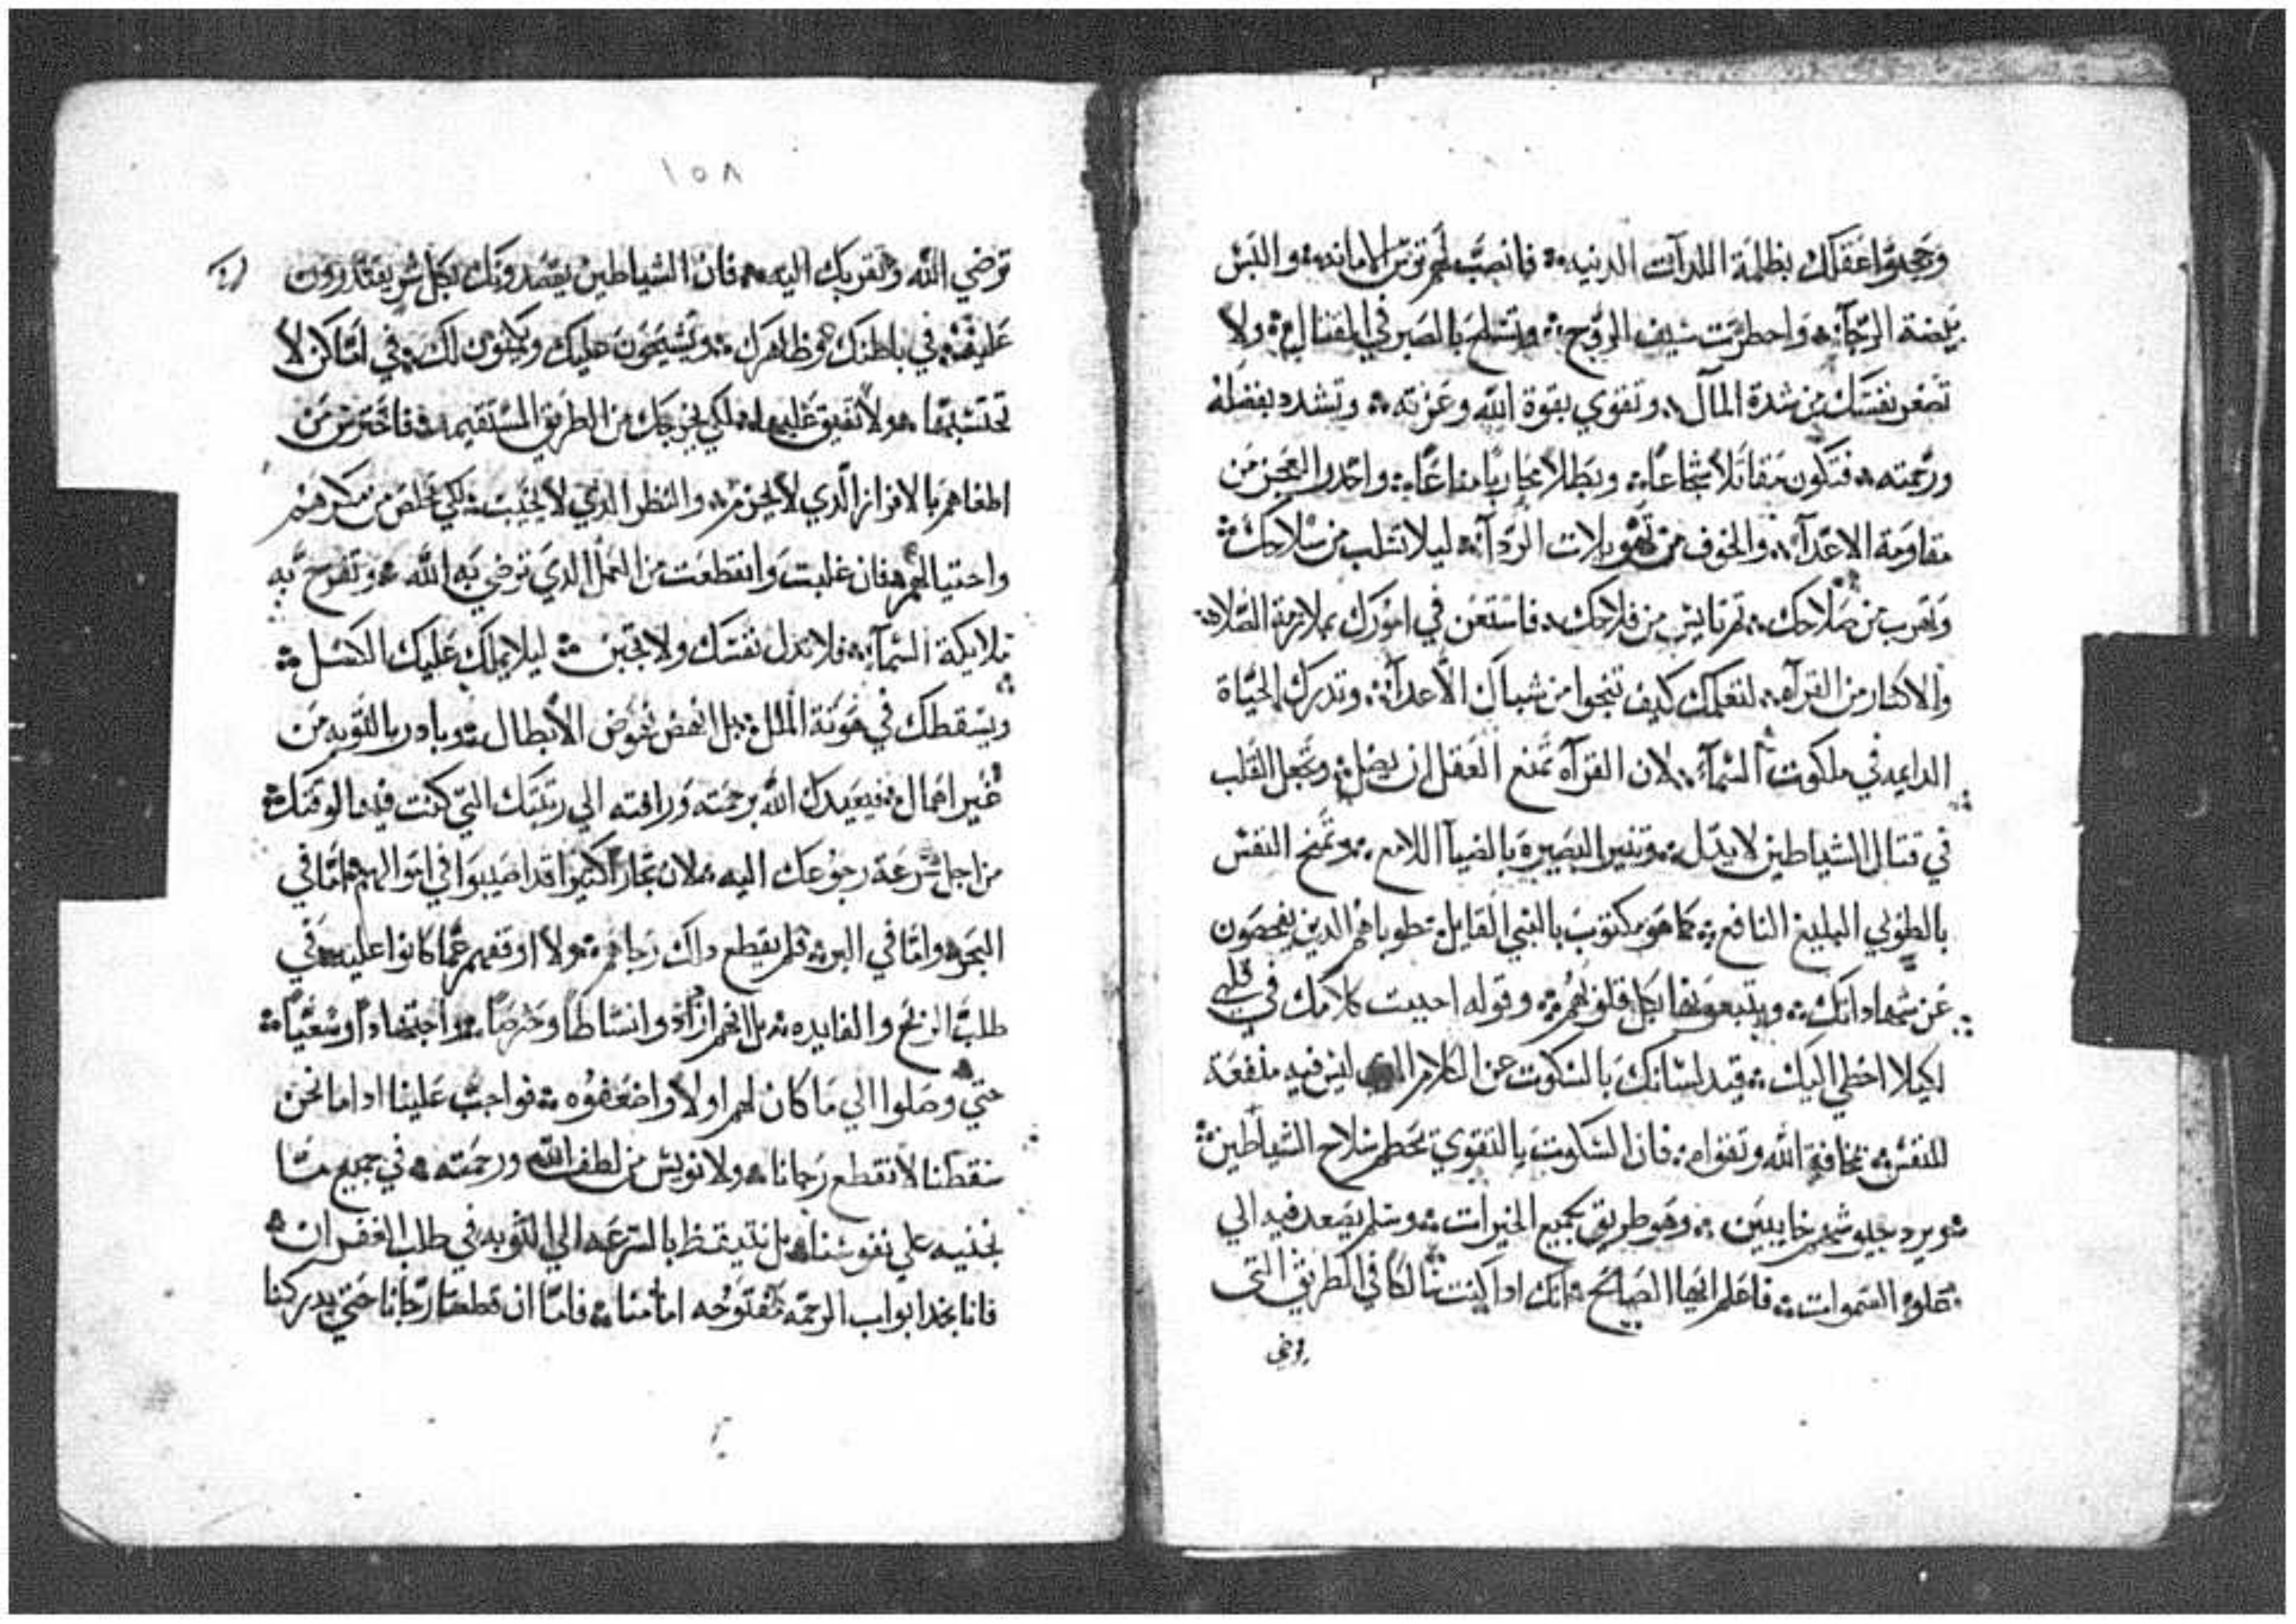 وحجبوا عقلك بظلمة اللدات الدنيه فانصب لهم ترس الامانه والبس
بيضة الرجآ واحطرمت سيف الروح وتسلح بالصبر في القتال ولا
تصغر نفسك من شدة المال وتقوي بقوة الله وعزته وتشدد بفضله
ورحمته فتكون مقاتلا شجاعا وبطلا محاربا مناعا واحدر العجز من
مقاومة الاعدآ والخوف من تهويلات الردآ ليلا تتلب من سلاحك
وتهرب من صلاحك تم تايس من فلاحك فاستعن في امورك بملازمة الصلاه
والاكتار من القرآه لتعلمك كيف تنجوا من شباك الأعدآ وتدرك الحياة
الدايمه في ملكوت السمآ لان القرآه تمنع العقل ان يضل وتجعل القلب
في قتال الشياطين لا يدل وتنير البصيره بالضيآ اللامع وتمنح النفس
بالطوبي البليغ النافع كما هو مكتوب بالنبي القايل طوباهم الدين يفحصون
عن شهاداتك ويتبعونها بكل قلوبهم وقوله احببت كلامك في قلبي
لكيلا اخطي اليك قيد لسانك بالسكوت عن الكلام الدي ليس فيه منفعة
للنفس مخافة الله وتقواه فان السكوت بالتقوي يحطم سلاح الشياطين
ويرد جيوشهم خايبين وهو طريق بجميع الخيرات وسلم يصعد فيه الي
علوا السموات فاعلم ايها الصالح انك ادا كنت سالكا في الطريق التي
ترضي
١٥٨
ترضي الله وتقربك اليه فان الشياطين يقصدونك بكل شر يقتدرون
عليه في باطنك وظاهرك وتشيعون عليك ويكنون لك في اماكن لا
تحتسبها ولا تفيق عليها لكي يخرجك من الطريق المستقيم فاحترس من
اطغاهم بالافراز الدي لا يحزم والنظر الدي لا يخيب لكي تخلص من مكرهم
واحتيالهم فان غلبت وانقطعت من العمل الدي ترضي به الله وتفرح به
ملايكة السمآ فلا تدل نفسك ولا تجبن ليلا يملك عليك الكسل
ويسقطك في هوتة الملل بل انهض نهوض الأبطال وبادر بالتوبه من
غير اهمال فيعيدك الله برحمته ورافته الي رتبتك التي كنت فيها لوقتك
من اجل سرعة رجوعك اليه لان تجار اكتيرا قد اصيبوا في اموالهم اما في
البحر واما في البر فلم يقطع داك رجاهم ولا اوقفهم عما كانوا عليه في
طلب الربح والفايده بل انهم ازدادوا نشاطا وحرصا واجتهادا وسعيا
حتي وصلوا الي ما كان لهم اولا واضعفوه فواجب علينا ادا ما نحن
سقطنا لا نقطع رجانا ولا نويس من لطف الله ورحمته في جميع ما
نجنيه علي نفوسنا بل نتيقظ بالسرعه الي التوبه في طلب الغفران
فانا نجد ابواب الرحمه مفتوحه امامنا فاما ان قطعنا رجانا حتي يدركنا